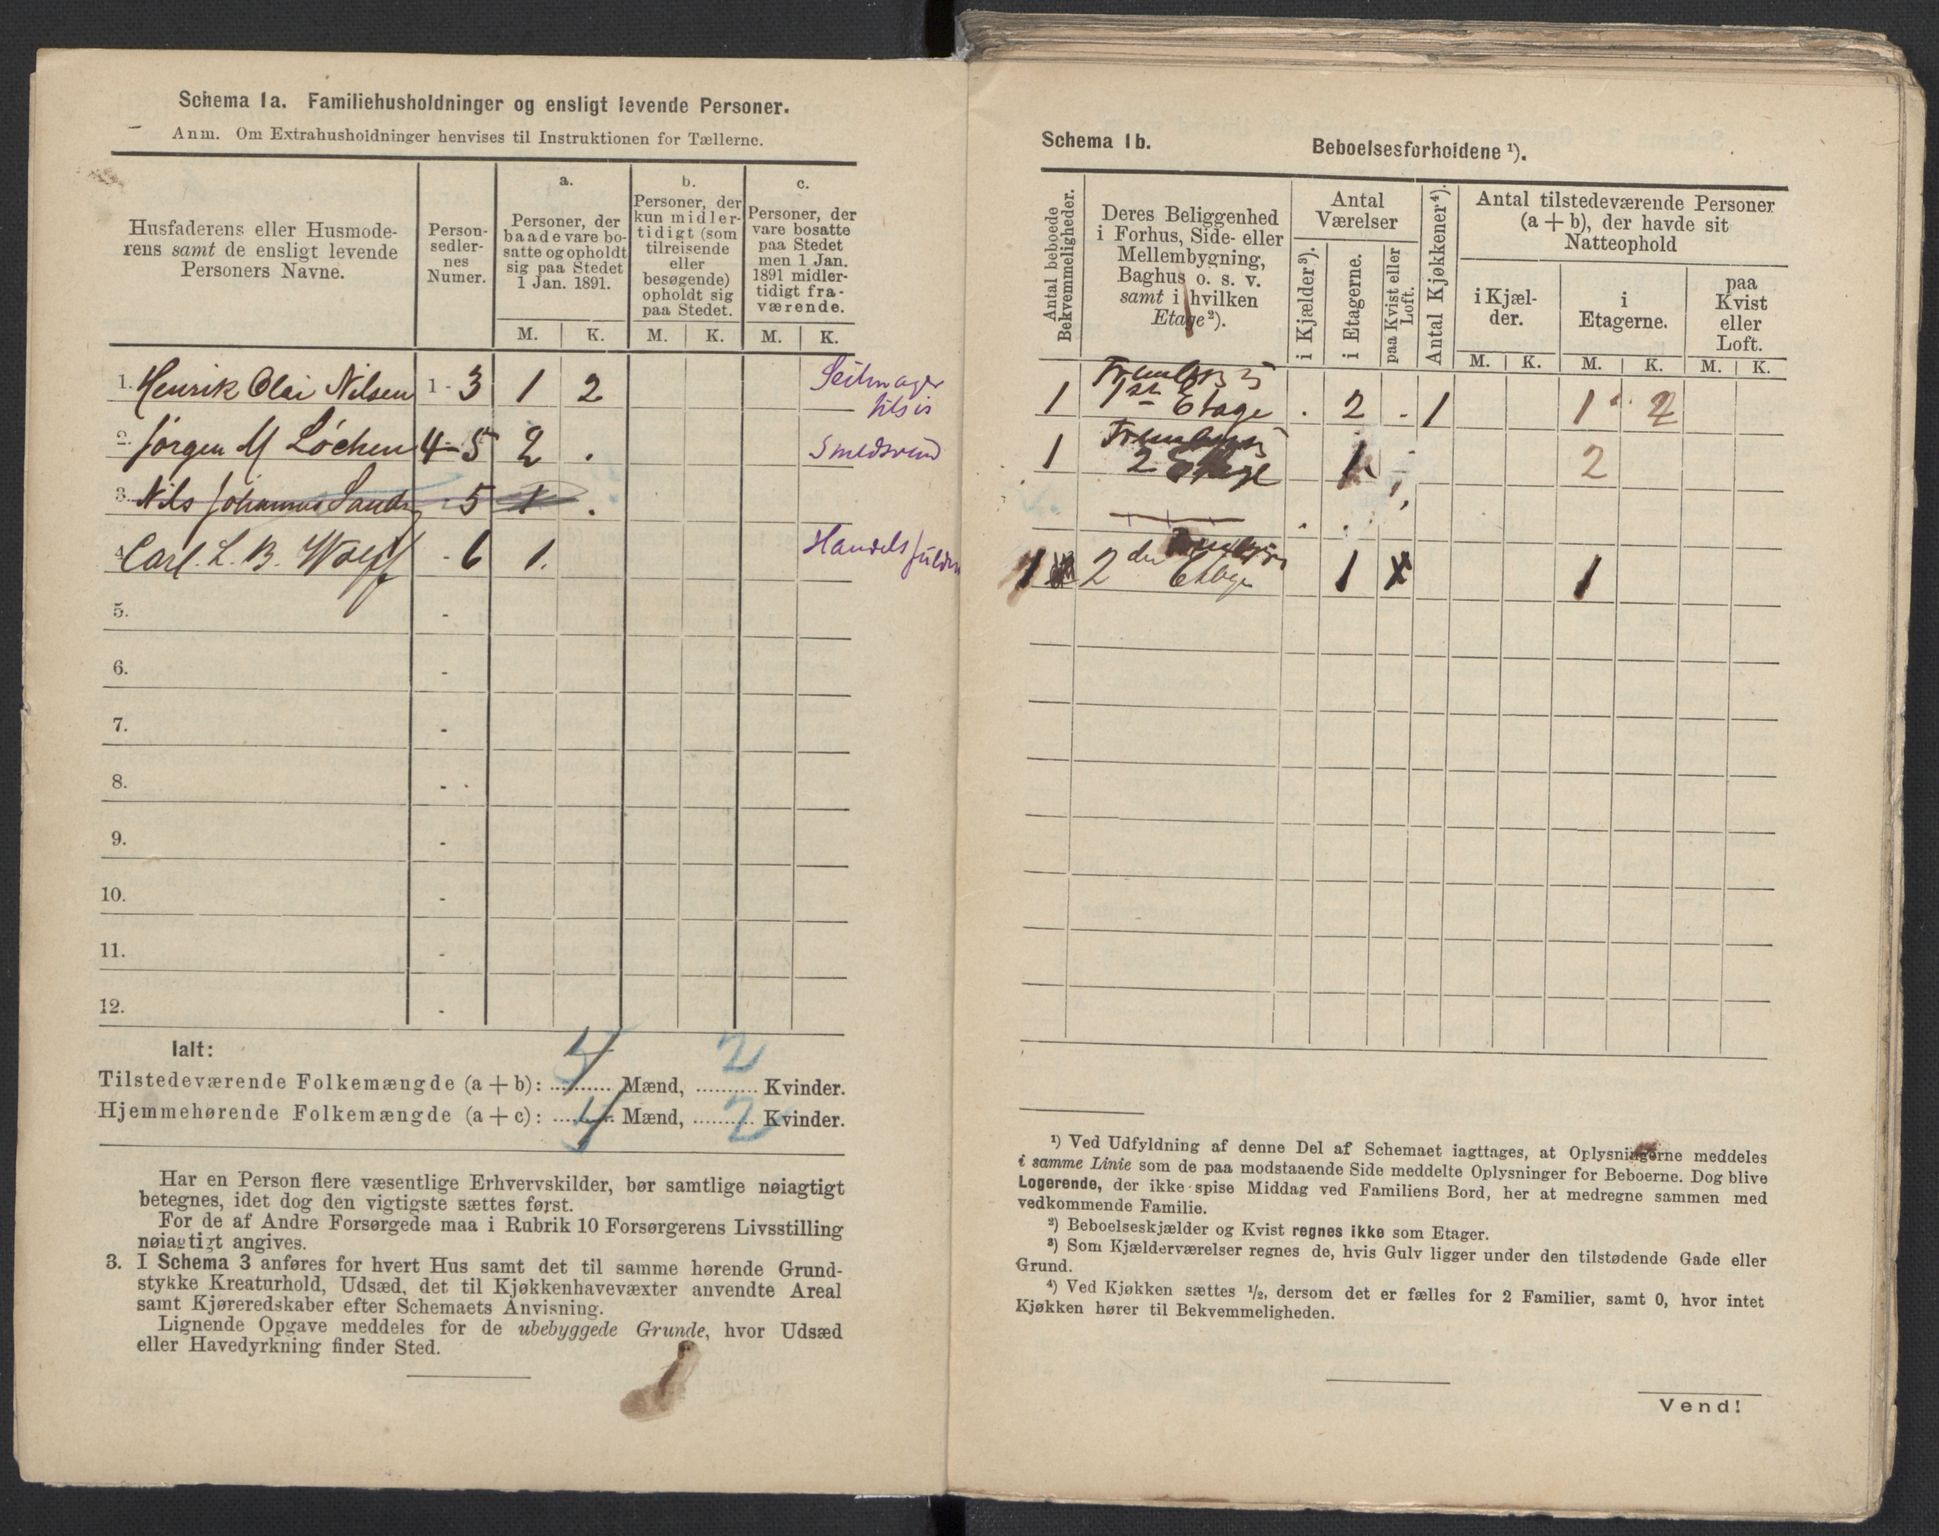 Schema 1a. Familiehusholdninger og ensligt levende Personer.
Anm. Om Extrahusholdninger henvises til Instruktionen for Tællerne.
Husfaderens eller Husmode-
rens samt de ensligt levende
Personers Navne.
Person-
sedler-
nes
Numer.
a.
Personer, der
baade vare bo-
satte og opholdt
sig paa Stedet
1 Jan. 1891.
b.
Personer, der
kun midler-
tidigt (som
tilreisende
eller
besøgende)
opholdt sig
paa Stedet.
c.
Personer, der
vare bosatte
paa Stedet
men 1 Jan.
1891 midler-
tidigt fra-
værende.
M. K. M. K. M. K.
1. Henrik Olai Nilsen 1 - 3 1 2 Seilmager
2. Jørgen M Løchen 4 - 5 2 . Smedsvend
3. Nils Johannes - 5 1 .
4. Carl. L. B. Wolff - 6 1. Handels
5. -
6. -
7. -
8. -
9. -
10. -
11. -
12. -
Ialt:
Tilstedeværende Folkemængde (a + b): 4 Mænd, 2 Kvinder.
Hjemmehørende Folkemængde (a + c): 4 Mænd, 2 Kvinder.
Har en Person flere væsentlige Erhvervskilder, bør samtlige nøiagtigt
betegnes, idet dog den vigtigste sættes først.
For de af Andre Forsørgede maa i Rubrik 10 Forsørgerens Livsstilling
nøiagtigt angives.
3. I Schema 3 anføres for hvert Hus samt det til samme hørende Grund-
stykke Kreaturhold, Udsæd, det til Kjøkkenhavevæxter anvendte Areal
samt Kjøreredskaber efter Schemaets Anvisning.
Lignende Opgave meddeles for de ubebyggede Grunde, hvor Udsæd
eller Havedyrkning finder Sted.
Schema 1b. Beboelsesforholdene ¹).
Antal beboede
Bekvemmeligheder.
Deres Beliggenhed
i Forhus, Side- eller
Mellembygning,
Baghus o. s. v.
samt i hvilken
Etage ²).
Antal
Værelser
i Kjælder ³).
i Etagerne.
paa Kvist eller
Loft.
Antal Kjøkkener ⁴).
Antal tilstedeværende Personer
(a + b), der havde sit
Natteophold
i Kjæl-
der.
i
Etagerne.
paa
Kvist
eller
Loft.
M. K. M. K. M. K.
1 1ste Etage . 2 . 1 1 2
1 2 Etage 1 2
1 2den Etage 1 x 1
¹) Ved Udfyldning af denne Del af Schemaet iagttages, at Oplysningerne meddeles
i samme Linie som de paa modstaaende Side meddelte Oplysninger for Beboerne. Dog blive
Logerende, der ikke spise Middag ved Familiens Bord, her at medregne sammen med
vedkommende Familie.
²) Beboelseskjælder og Kvist regnes ikke som Etager.
³) Som Kjælderværelser regnes de, hvis Gulv ligger under den tilstødende Gade eller
Grund.
⁴) Ved Kjøkken sættes ½, dersom det er fælles for 2 Familier, samt 0, hvor intet
Kjøkken hører til Bekvemmeligheden.
Vend!